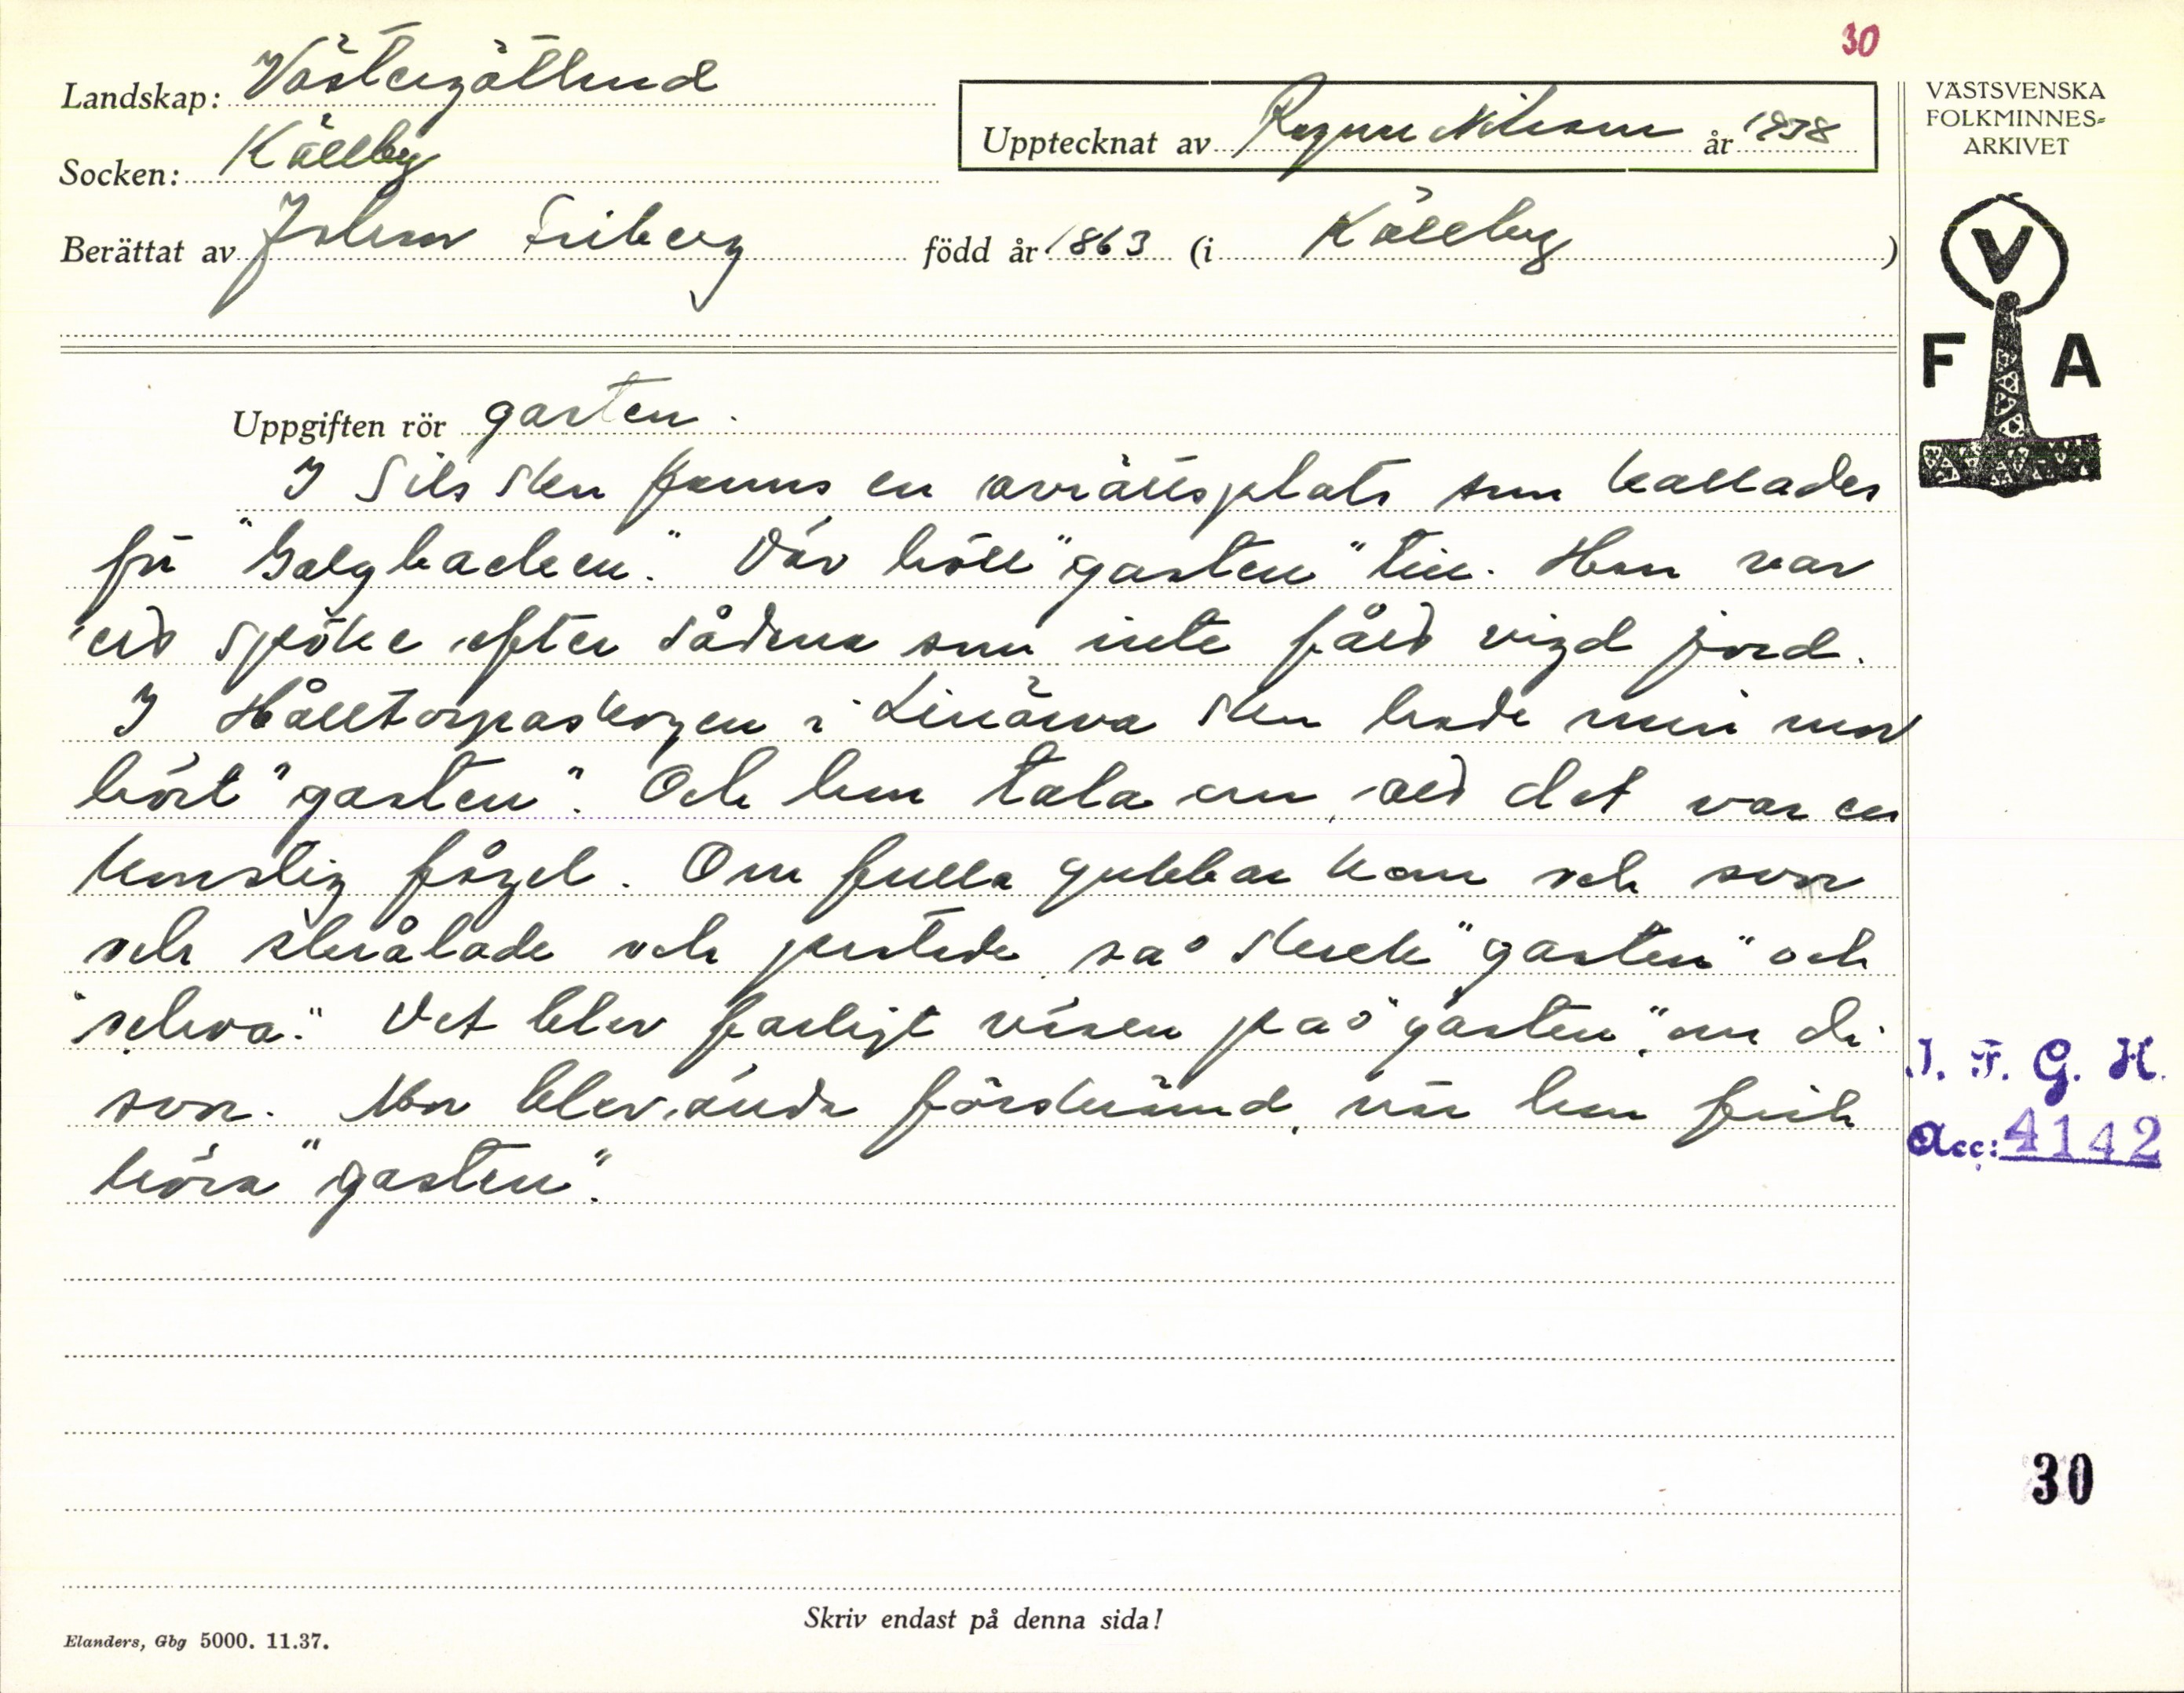 30
Landskap: Västergötland
Socken: Källby
Upptecknat av Ragnar Nilsson år 1938
Berättat av Johan Friberg född år 1863 (i Källby)
VÄSTSVENSKA
FOLKMINNES=
ARKIVET
V
F A
Uppgiften rör gasten.
I Sils skn fanns en avrättsplats som kallades
för "Galgbacken". Där höll "gasten" till. Han var
ett spöke efter sådana som inte fått vigd jord.
I Hålltorpaskogen i Linärva skn hade min mor
hört "gasten". Och hon tala om, att det var en
konstig fågel. Om fulla gubbar kom och svor
och skrålade och pratade så skrek "gasten" och
. Det blev farligt väsen på "gasten", om di
svor. Mor blev förskrämd, när hon fick
höra "gasten".
I. F. G. H.
Acc: 4142
30
Skriv endast på denna sida!
Elanders, Gbg 5000. 11.37.